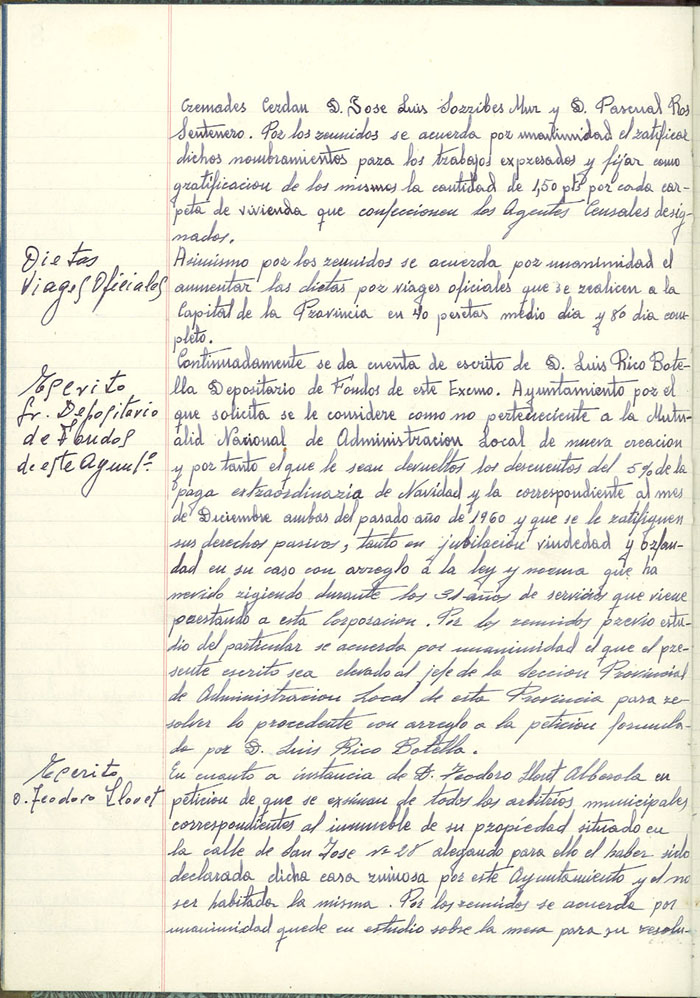 Cremades Cerdan D. Jose Luis Sorribes Mur y D. Pascual Ros
Sentenero. Por los reunidos se acuerda por unanimidad el ratificar
dichos nombramientos para los trabajos expresados y fijar como
gratificacion de los mismos la cantidad de 1,50 pts por cada car-
peta de vivienda que confeccionen los Agentes Censales desig-
nados.
Dietas
Viages Oficiales
Asimismo por los reunidos se acuerda por unanimidad el
aumentar las dietas por viages oficiales que se realicen a la
Capital de la Provincia en 40 pesetas medio dia y 80 dia com-
pleto.
Escrito
Sr. Depositario
de Fondos
de este Ayunt.º
Continuadamente se da cuenta de escrito de D. Luis Rico Bote-
lla Depositario de Fondos de este Excmo. Ayuntamiento por el
que solicita se le considere como no perteneciente a la Mutu-
alid Nacional de Administracion Local de nueva creacion
y por tanto el que le sean devueltos los descuentos del 5% de la
paga extraordinaria de Navidad y la correspondiente al mes
de Diciembre ambas del pasado año de 1960 y que se le ratifiquen
sus derechos pasivos, tanto en jubilacion viudedad y orfan-
dad en su caso con arreglo a la ley y norma que ha
venido rigiendo durante los 31 años de servicios que viene
prestando a esta Corporacion. Por los reunidos previo estu-
dio del particular se acuerda por unanimidad el que el pre-
sente escrito sea elevado al jefe de la Seccion Provincial
de Administracion Local de esta Provincia para re-
solver lo procedente con arreglo a la peticion formula-
da por D. Luis Rico Botella.
Escrito
D. Teodoro Llovet
En cuanto a instancia de D. Teodoro Llovet Alberola en
peticion de que se eximan de todos los arbitrios municipales
correspondientes al inmueble de su propiedad situado en
la calle de San Jose nº 28 alegando para ello el haber sido
declarada dicha casa ruinosa por este Ayuntamiento y el no
ser habitada la misma. Por los reunidos se acuerda por
unanimidad quede en estudio sobre la mesa para su resolu-